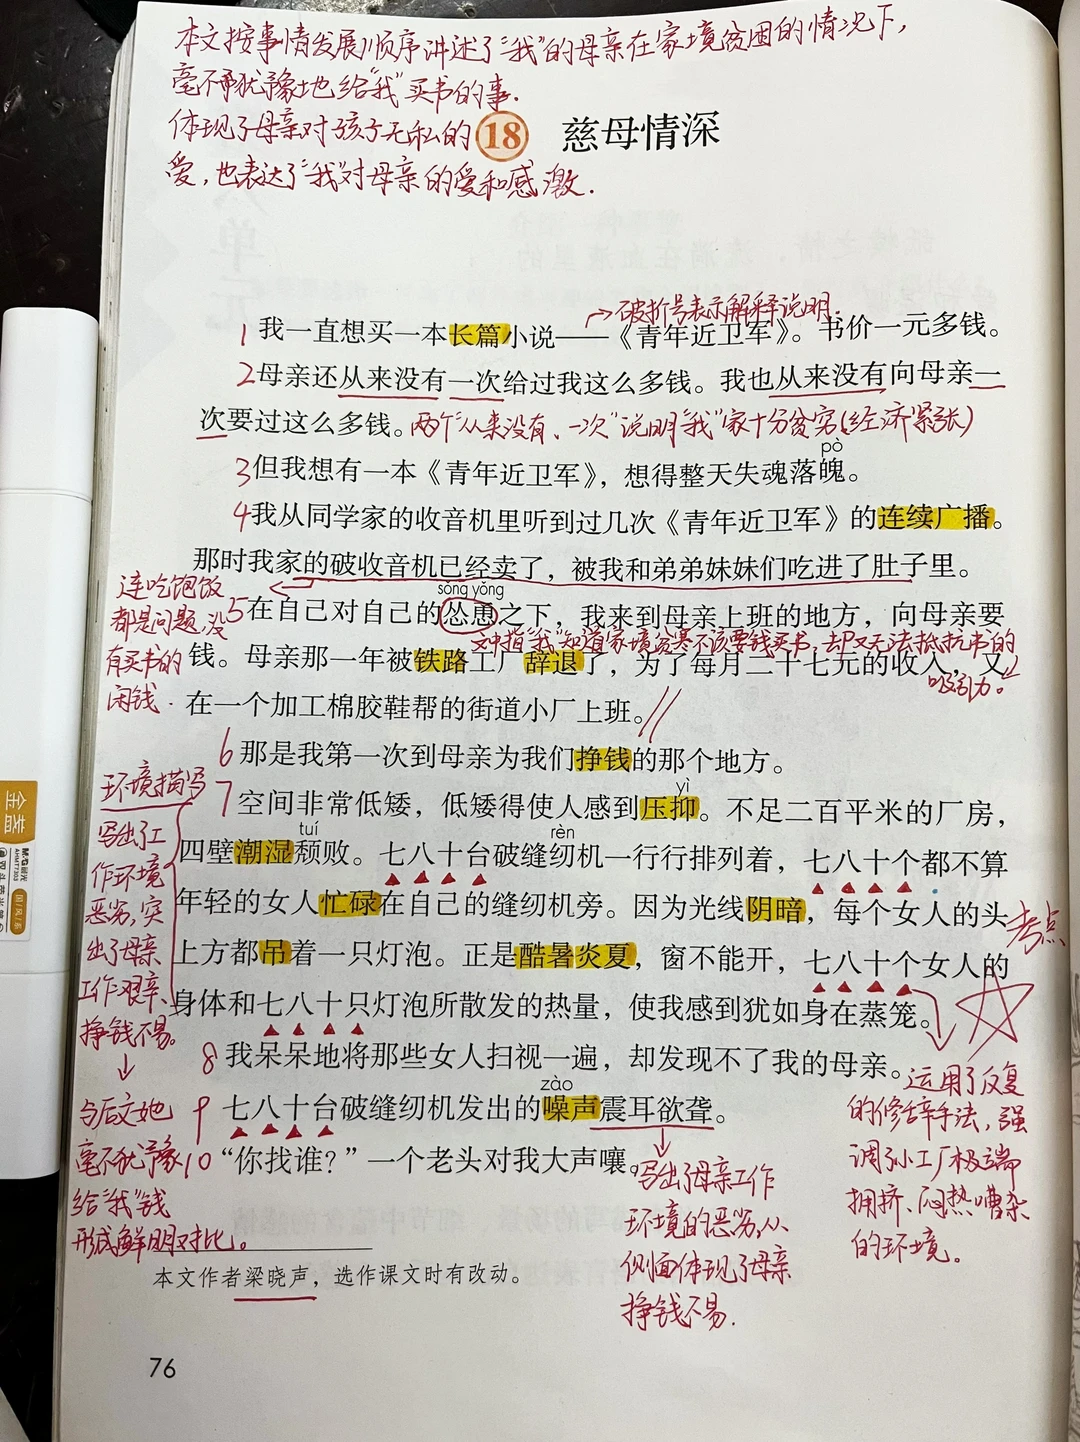 本文按事情发展顺序讲述了“我”的母亲在家境贫困的情况下,
毫不犹豫地给“我”买书的事.
体现了母亲对孩子无私的
爱,也表达了“我”对母亲的爱和感激.
18 慈母情深
破折号表示解释说明.
1 我一直想买一本长篇小说——《青年近卫军》。书价一元多钱。
2 母亲还从来没有一次给过我这么多钱。我也从来没有向母亲一
次要过这么多钱。
两个“从来没有、一次”说明“我”家十分贫穷(经济紧张)
pò
3 但我想有一本《青年近卫军》,想得整天失魂落魄。
4 我从同学家的收音机里听到过几次《青年近卫军》的连续广播。
那时我家的破收音机已经卖了,被我和弟弟妹妹们吃进了肚子里。
连吃饱饭
都是问题,没
有买书的
闲钱
sǒng yǒng
5 在自己对自己的怂恿之下,我来到母亲上班的地方,向母亲要
文中指“我”知道家境贫寒不该要钱买书,却又无法抵抗书的
吸引力。
钱。母亲那一年被铁路工厂辞退了,为了每月二十七元的收入,又
在一个加工棉胶鞋帮的街道小厂上班。
6 那是我第一次到母亲为我们挣钱的那个地方。
yì
7 空间非常低矮,低矮得使人感到压抑。不足二百平米的厂房,
tuí rèn
四壁潮湿颓败。七八十台破缝纫机一行行排列着,七八十个都不算
年轻的女人忙碌在自己的缝纫机旁。因为光线阴暗,每个女人的头
上方都吊着一只灯泡。正是酷暑炎夏,窗不能开,七八十个女人的
身体和七八十只灯泡所散发的热量,使我感到犹如身在蒸笼。
考点
环境描写
写出了工
作环境
恶劣,突
出了母亲
工作艰辛、
挣钱不易。
与后文她
毫不犹豫
给“我”钱
形成鲜明对比。
8 我呆呆地将那些女人扫视一遍,却发现不了我的母亲。
zào
9 七八十台破缝纫机发出的噪声震耳欲聋。
10 “你找谁?”一个老头对我大声嚷。
运用了反复
的修辞手法,强
调了小工厂极端
拥挤、闷热嘈杂
的环境。
写出了母亲工作
环境的恶劣,从
侧面体现了母亲
挣钱不易.
本文作者梁晓声,选作课文时有改动。
76
金盏
M&G晨光
国/风/系